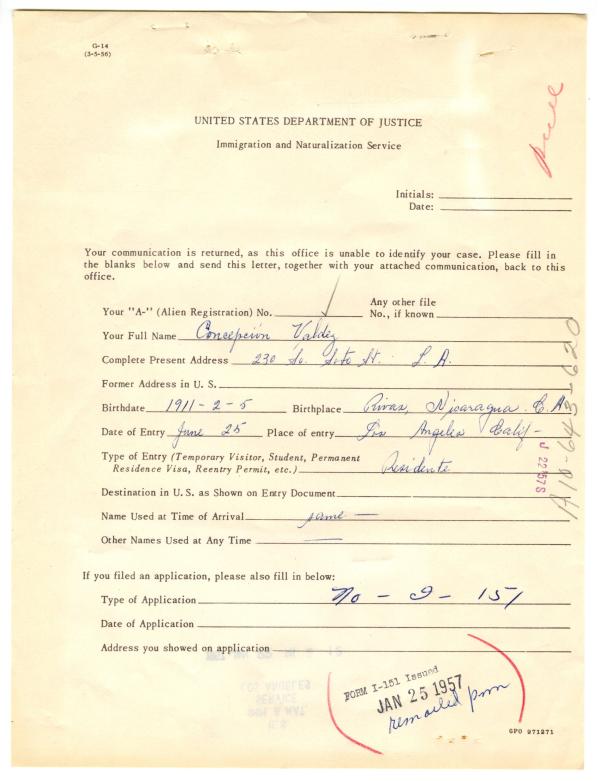 G-14
(3-5-56)
UNITED STATES DEPARTMENT OF JUSTICE
Immigration and Naturalization Service
Initials:
Date:
Your communication is returned, as this office is unable to identify your case. Please fill in
the blanks below and send this letter, together with your attached communication, back to this
office.
Your "A-" (Alien Registration) No. Any other file No., if known
Your Full Name Concepción Valdéz
Complete Present Address 230 So. Soto St. L.A.
Former Address in U. S.
Birthdate 1911-2-5 Birthplace Rivas, Nicaragua. C.A.
Date of Entry June 25 Place of entry Los Angeles Calif-
Type of Entry (Temporary Visitor, Student, Permanent
Residence Visa, Reentry Permit, etc.) Residente
Destination in U. S. as Shown on Entry Document
Name Used at Time of Arrival same —
Other Names Used at Any Time —
If you filed an application, please also fill in below:
Type of Application No - I - 151
Date of Application
Address you showed on application
J 22'57 S
FORM I-151 Issued
JAN 25 1957
remailed
GPO 971271